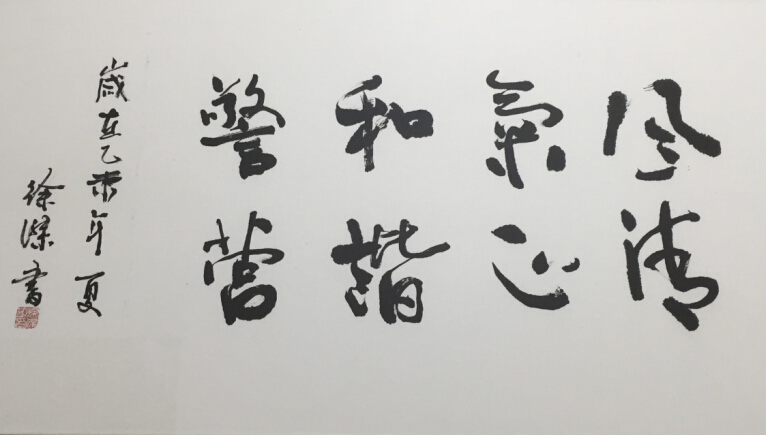 風清
氣正
和諧
警营
歲在乙未年夏
徐溁書